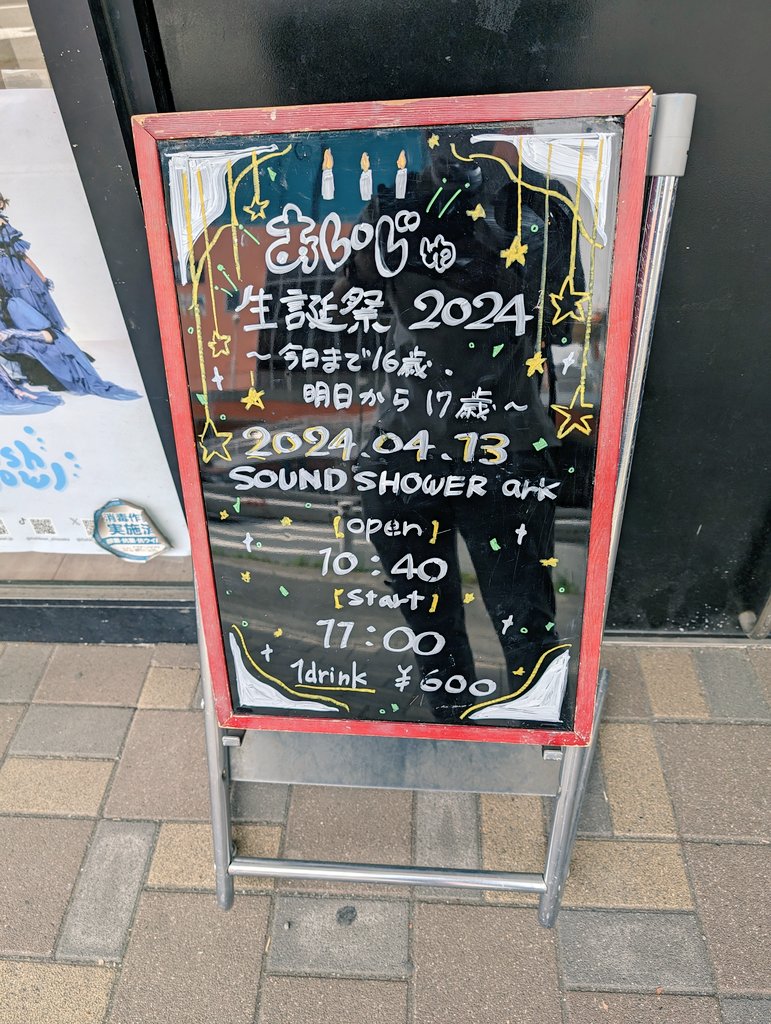 生誕祭 2024
～今日まで16歳、
明日から17歳～
2024.04.13
SOUND SHOWER ark
【open】
10:40
【start】
11:00
1drink ¥600
実施